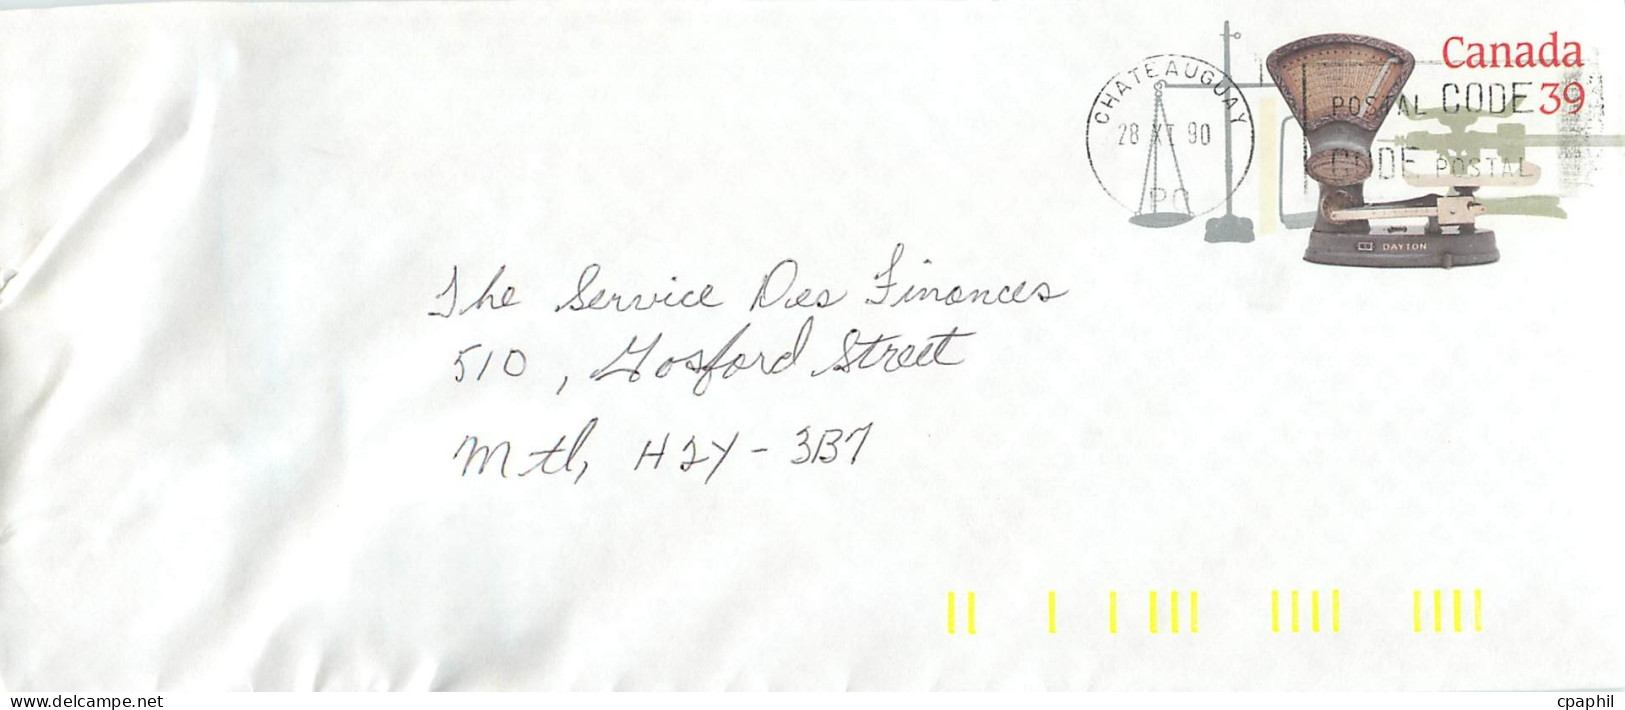 Canada
39
CHATEAUGUAY
28 XI 90
PQ
POSTAL CODE
CODE POSTAL
DAYTON
The Service Des Finances
510, Gosford Street
Mtl, H2Y-3B7
Visit our store at:
cpaphil